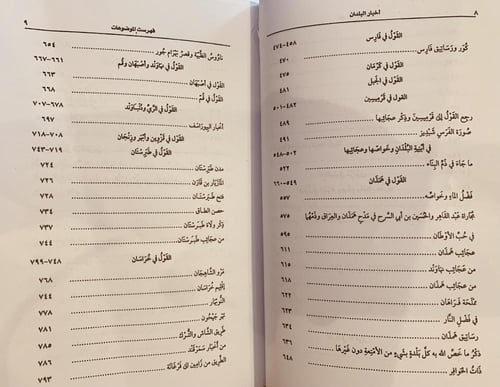 ٨
أخبار البلدان
القَوْلُ في فَارِس
٤٥٨-٤٧٤
كُوَر ورَسَاتِيق فَارِس
٤٧٠
القَوْلُ في كَرْمَان
٤٧٥
القَوْلُ في الجَبَل
٤٨١
القول في قَرْمِيسِين
٤٨٢-٥٠١
رجع القَوْل إلى قَرْمِيسِين وذِكْر عجائبها
٤٨٩
صُورَة الفَرَس شَبْدِيز
٤٩١
في أَبْنِيَة البُلْدَان وخَواصّها وعجائِبها
٥٠٢-٥٤٨
مَا جَاءَ في ذَمّ البِنَاء
القَوْل في هَمَذَان
٥٤٩-٦٦٠
فَضْل الماءِ وخَواصّه
٥٥٧
مُحَاوَرَة عَبْد القَاهِر والحُسَيْن بن أبي السَّرح في مَدْحِ هَمَذَان والعِرَاق وذَمّهما
٥٧٥
في حُبّ الأوْطَان
٥٩٥
من عَجَائِب هَمَذَان
٦١١
من عَجَائِب نَهاوَنْد
٦١٥
من عَجَائِب هَمَذَان
٦١٨
مَلّاحَة فَرَاهَان
٦٢٢
في فَضْل النَّار
٦٢٣
رَسَاتِيق هَمَذَان
٦٣١
ذِكْرُ ما خَصَّ الله به كلَّ بَلْدَةٍ بشَيْءٍ من الأَمْتِعَةِ دون غَيْرِهَا
٦٣٦
ذَاتُ الحَوَافِر
٦٤٨
فهرست الموضوعات
٩
نَاوُوسُ الظَّبْيَة وقَصْرُ بَهْرَام جُور
٦٥٤
القَوْلُ في نَهَاوَنْد وأصْبَهَان وقُم
٦٦١-٦٦٧
القَوْل في أَصْبَهَان
٦٦٣
القَوْل في قُمّ
٦٦٨
القَوْلُ في الرَّيّ ودُنْبَاوَنْد
٦٧٨-٧٠٧
أخبار البيوراسف
٦٩٧
القَوْلُ في قَزْوِين وأَبْهَر وزَنْجَان
٧٠٨-٧١٨
القَوْلُ في طَبَرِسْتَان
٧١٩-٧٤٣
مدن طَبَرِسْتَان
٧٢٤
المَازْيَار بن قَارَن
٧٢٦
فتح طَبَرِسْتَان
٧٢٨
حصن الطاق
٧٣٤
ذِكْر ولاة طَبَرِسْتَان
٧٣٧
من عجائب طَبَرِسْتَان
٧٤٤
القَوْلُ في خُرَاسَان
٧٤٨-٧٩٩
مَرْو الشَّاهِجَان
٧٦٨
إقليم خُرَاسَان
٧٤٤
النُّوبَهَار
٧٧٨
نَهْر جَيْحُون
٧٨١
طريق الشَّاش والتُّرْك
٧٨٥
من أَخْبَار سَمَرْقَنْد
٧٨٧
الطَّرِيق من زَامِين إلى فَرْغَانَة
٧٩٣